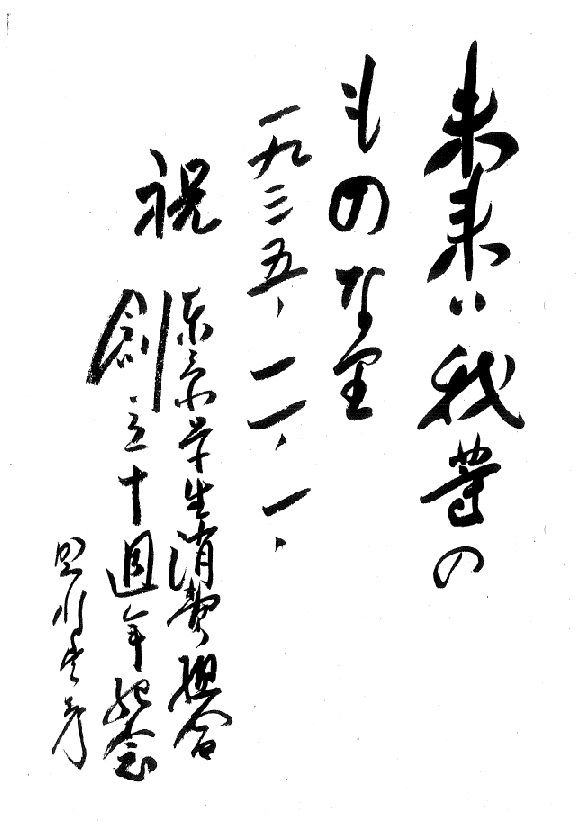 未来ハ我等の
ものなり
一九三五、一一、一、
祝
東京学生消費組合
創立十週年紀念
賀川豊彦